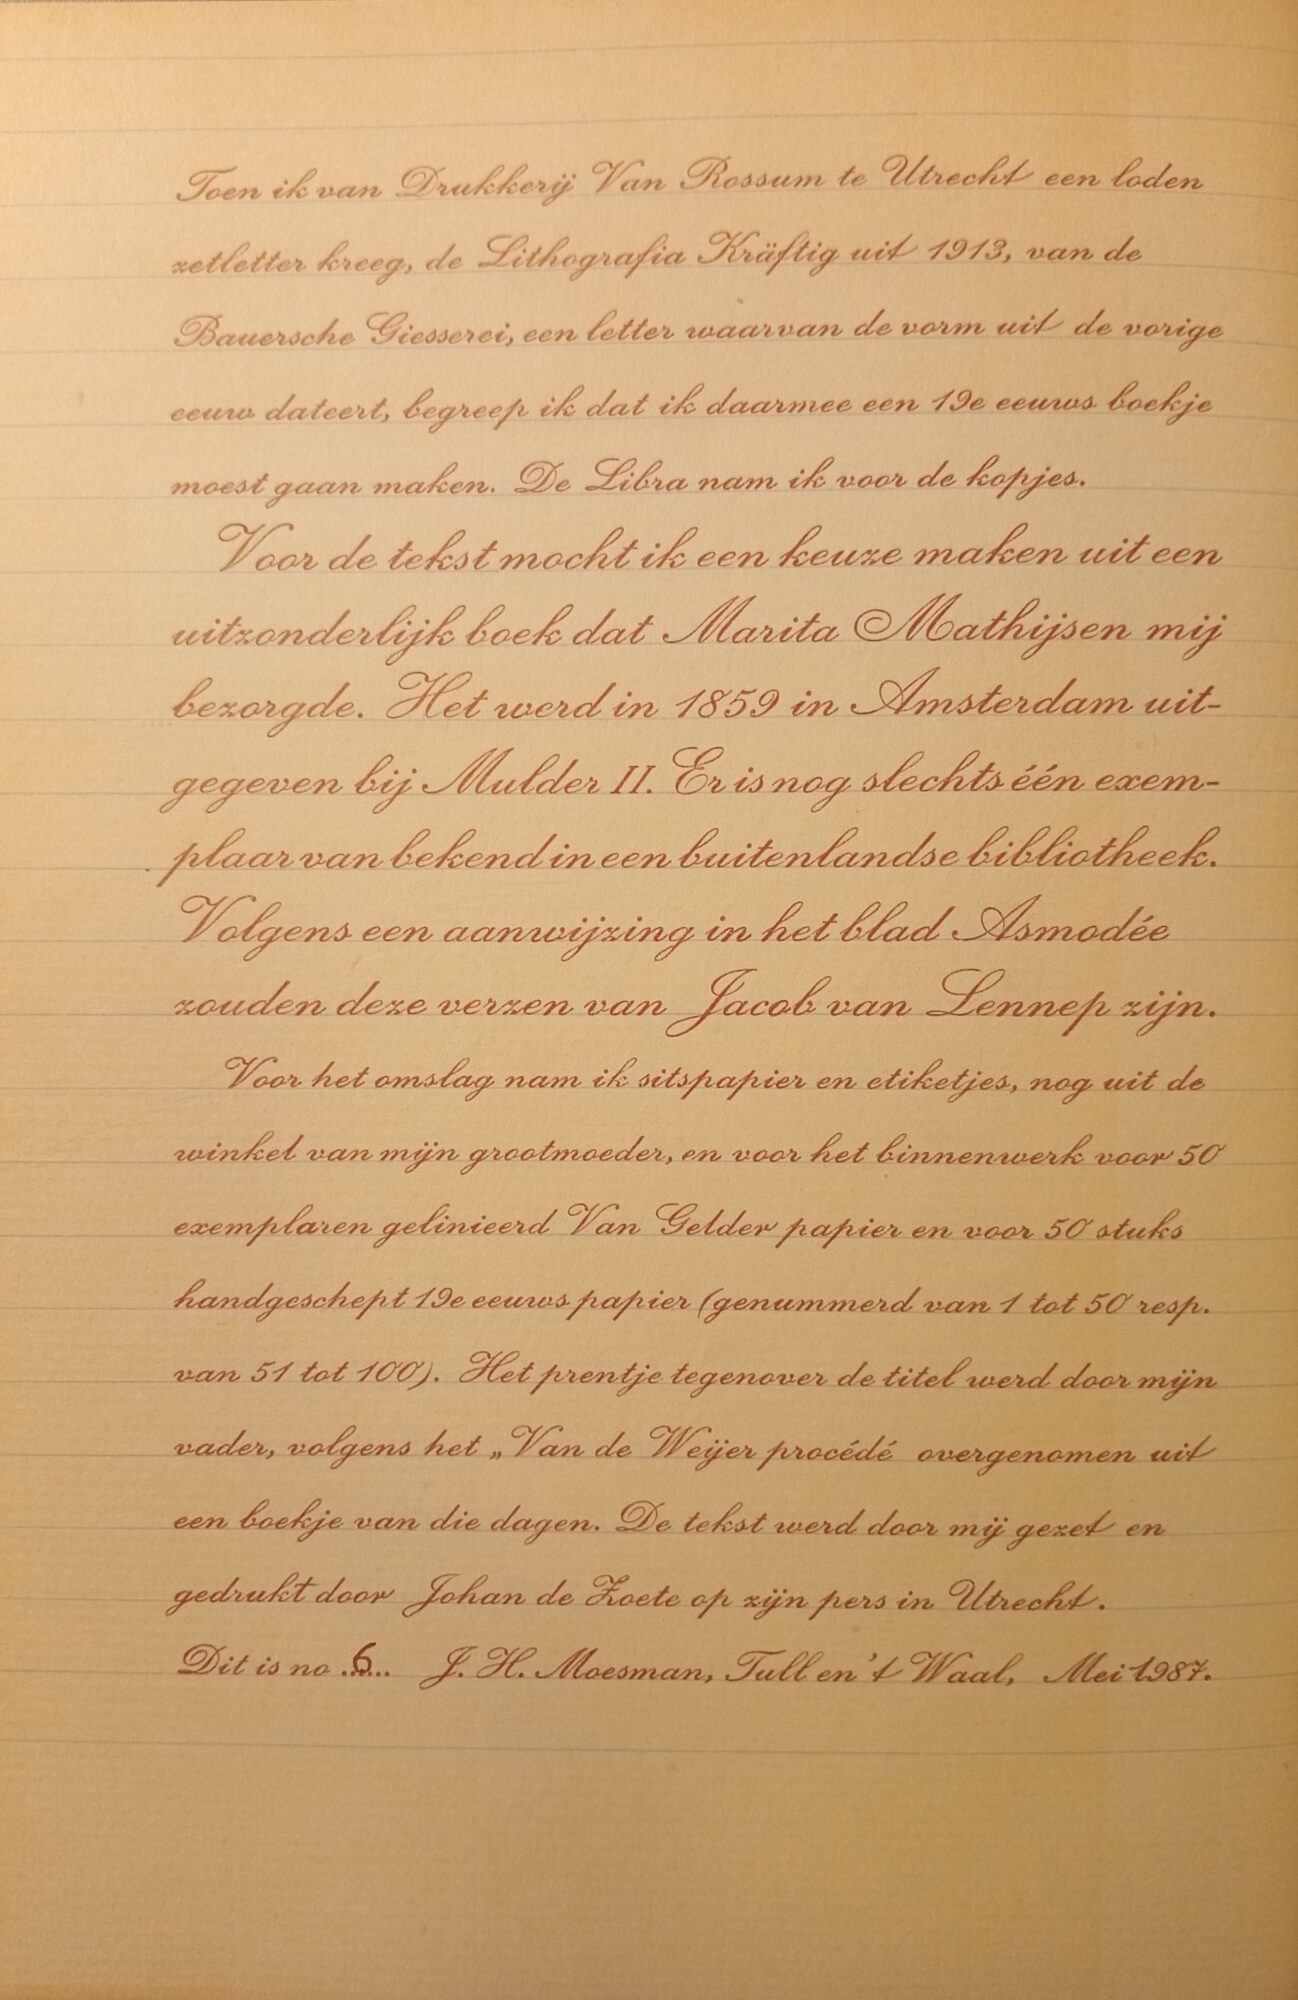 Toen ik van Drukkerij Van Rossum te Utrecht een loden
zetletter kreeg, de Lithografia Kräftig uit 1913, van de
Bauersche Giesserei, een letter waarvan de vorm uit de vorige
eeuw dateert, begreep ik dat ik daarmee een 19e eeuws boekje
moest gaan maken. De Libra nam ik voor de kopjes.
Voor de tekst mocht ik een keuze maken uit een
uitzonderlijk boek dat Marita Mathijsen mij
bezorgde. Het werd in 1859 in Amsterdam uit-
gegeven bij Mulder II. Er is nog slechts één exem-
plaar van bekend in een buitenlandse bibliotheek.
Volgens een aanwijzing in het blad Asmodée
zouden deze verzen van Jacob van Lennep zijn.
Voor het omslag nam ik sitspapier en etiketjes, nog uit de
winkel van mijn grootmoeder, en voor het binnenwerk voor 50
exemplaren gelinieerd Van Gelder papier en voor 50 stuks
handgeschept 19e eeuws papier (genummerd van 1 tot 50 resp.
van 51 tot 100). Het prentje tegenover de titel werd door mijn
vader, volgens het „Van de Weijer procédé overgenomen uit
een boekje van die dagen. De tekst werd door mij gezet en
gedrukt door Johan de Zoete op zijn pers in Utrecht.
Dit is no ..6... J. H. Moesman, Tull en 't Waal, Mei 1987.